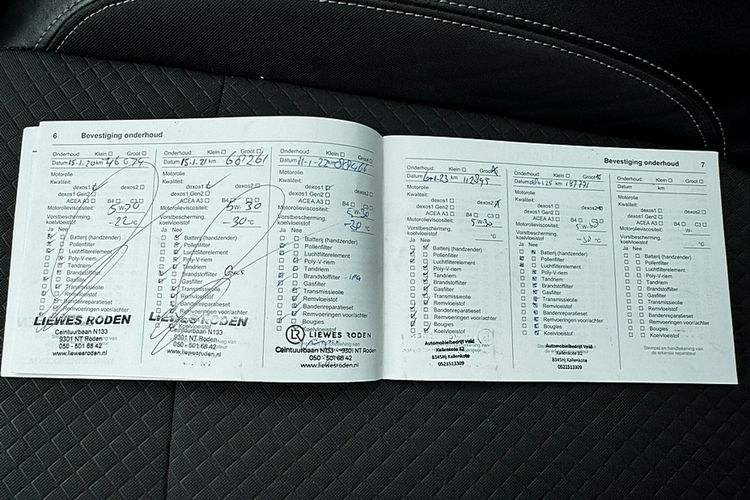 6 Bevestiging onderhoud
Onderhoud: Klein Groot
Datum 15-1-20 km
Motorolie
Kwaliteit:
dexos1 dexos2
dexos1 Gen2
ACEA A3 B4 C3
Motorolieviscositeit: 5W-30
Vorstbescherming,
koelvloeistof -22 °C
Ja Nee
Batterij (handzender)
Pollenfilter
Luchtfilterelement
Poly-V-riem
Tandriem
Brandstoffilter
Gasfilter
Transmissieolie
Remvloeistof
Bandenreparatieset
Remvoeringen voor/achter
LIEWES RODEN
Ceintuurbaan N133
9301 NT Roden
050 - 501 68 42
www.liewesroden.nl
Onderhoud: Klein Groot
Datum 15-1-21 km 68261
Motorolie
Kwaliteit:
dexos1 dexos2
dexos1 Gen2
ACEA A3 B4 C3
Motorolieviscositeit: 5W-30
Vorstbescherming,
koelvloeistof -30 °C
Ja Nee
Batterij (handzender)
Pollenfilter
Luchtfilterelement
Poly-V-riem
Tandriem
Brandstoffilter
Gasfilter
Transmissieolie
Remvloeistof
Bandenreparatieset
Remvoeringen voor/achter
LIEWES RODEN
Koelvloeistof
Ceintuurbaan N133
9301 NT Roden
050 - 501 68 42
www.liewesroden.nl
Onderhoud: Klein Groot
Datum 11-1-22
Motorolie
Kwaliteit:
dexos1 dexos2
dexos1 Gen2
ACEA A3 B4 C3
Motorolieviscositeit: 5W-30
Vorstbescherming,
koelvloeistof -30 °C
Ja Nee
Batterij (handzender)
Pollenfilter
Luchtfilterelement
Poly-V-riem
Tandriem
Brandstoffilter
Gasfilter
Transmissieolie
Remvloeistof
Bandenreparatieset
Remvoeringen voor/achter
Bougies
LR LIEWES RODEN
Ceintuurbaan N133 - 9301 NT Roden
050 - 501 68 42
www.liewesroden.nl
Bevestiging onderhoud 7
Onderhoud: Klein Groot
Datum 6-1-23 km 112845
Motorolie
Kwaliteit:
dexos1 dexos2
dexos1 Gen2
ACEA A3 B4 C3
Motorolieviscositeit: 5W30
Vorstbescherming,
koelvloeistof °C
Ja Nee
Batterij (handzender)
Pollenfilter
Luchtfilterelement
Poly-V-riem
Tandriem
Brandstoffilter
Gasfilter
Transmissieolie
Remvloeistof
Bandenreparatieset
Remvoeringen voor/achter
Bougies
Koelvloeistof
Automobielbedrijf Veld
Kallenkote 52
8345HJ Kallenkote
0521513309
Onderhoud: Klein Groot
Datum km 137771
Motorolie
Kwaliteit:
dexos1 dexos2
dexos1 Gen2
ACEA A3 B4 C3
Motorolieviscositeit:
Vorstbescherming,
koelvloeistof -30 °C
Ja Nee
Batterij (handzender)
Pollenfilter
Luchtfilterelement
Poly-V-riem
Tandriem
Brandstoffilter
Gasfilter
Transmissieolie
Remvloeistof
Bandenreparatieset
Remvoeringen voor/achter
Bougies
Koelvloeistof
Automobielbedrijf Veld
8345HJ Kallenkote
0521513309
Onderhoud: Klein Groot
Datum km
Motorolie
Kwaliteit:
dexos1 dexos2
dexos1 Gen2
ACEA A3 B4 C3
Motorolieviscositeit:
Vorstbescherming,
koelvloeistof °C
Ja Nee
Batterij (handzender)
Pollenfilter
Luchtfilterelement
Poly-V-riem
Tandriem
Brandstoffilter
Gasfilter
Transmissieolie
Remvloeistof
Bandenreparatieset
Remvoeringen voor/achter
Bougies
Koelvloeistof
Stempel en handtekening van
de erkende reparateur